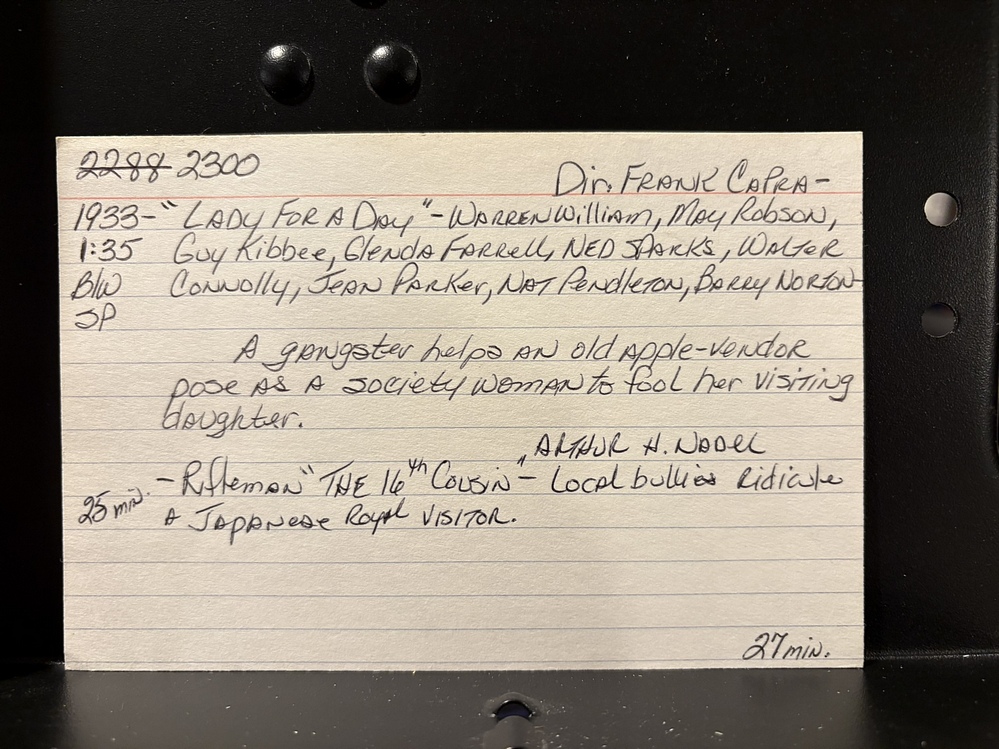 2288 2300
Dir. FRANK CAPRA-
1933-"LADY FOR A DAY"-WARREN William, MAY Robson,
1:35 Guy Kibbee, Glenda FARRell, NED SPARKS, WALTER
B/W CONNOlly, JEAN PARKer, NAT PENDleTON, BARRY NORTON-
SP
A gangster helps an old apple-vendor
pose as a society woman to fool her visiting
daughter.
ARTHUR H. NADEL
-Rifleman "THE 16th Cousin"- Local bullies ridicule
25 min. a Japanese Royal visitor.
27 min.